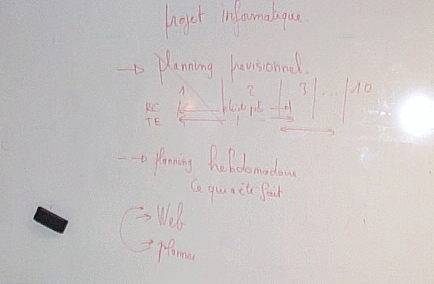 projet informatique.
→ planning previsionnel.
1 2 3 ... 10
RC
TE
--→ planning hebdomadaire
ce qui a été fait
→ Web
→ planner